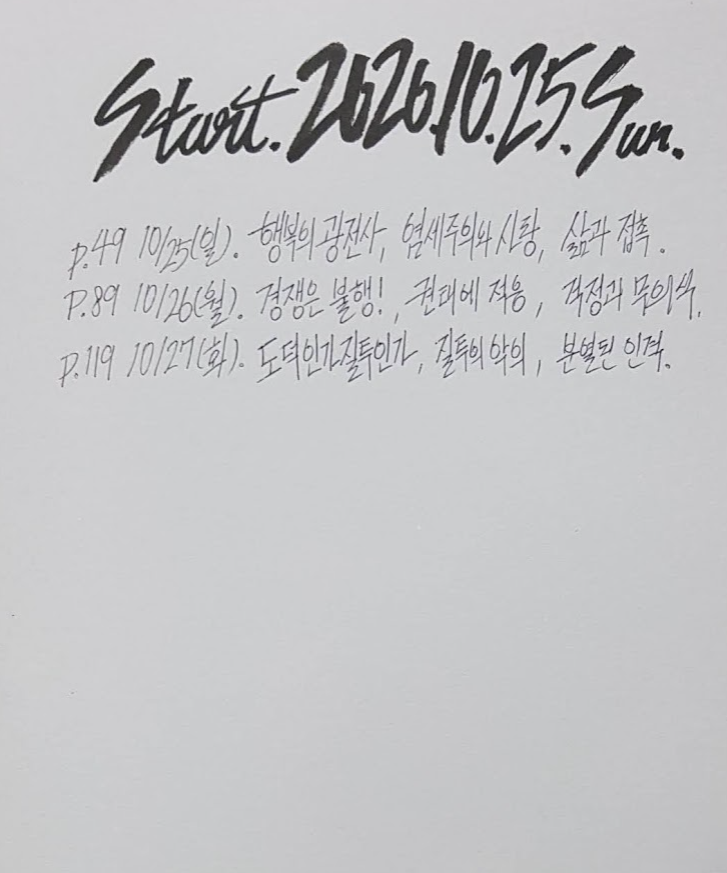 Start. 2020.10.25. Sun.
p.49 10/25(일). 행복의 광전사, 염세주의와 시황, 삶과 접촉.
P.89 10/26(월). 경쟁은 불행!, 권태에 적응, 걱정과 무의식.
P.119 10/27(화). 도덕인가 질투인가, 질투의 악의, 분열된 인격.